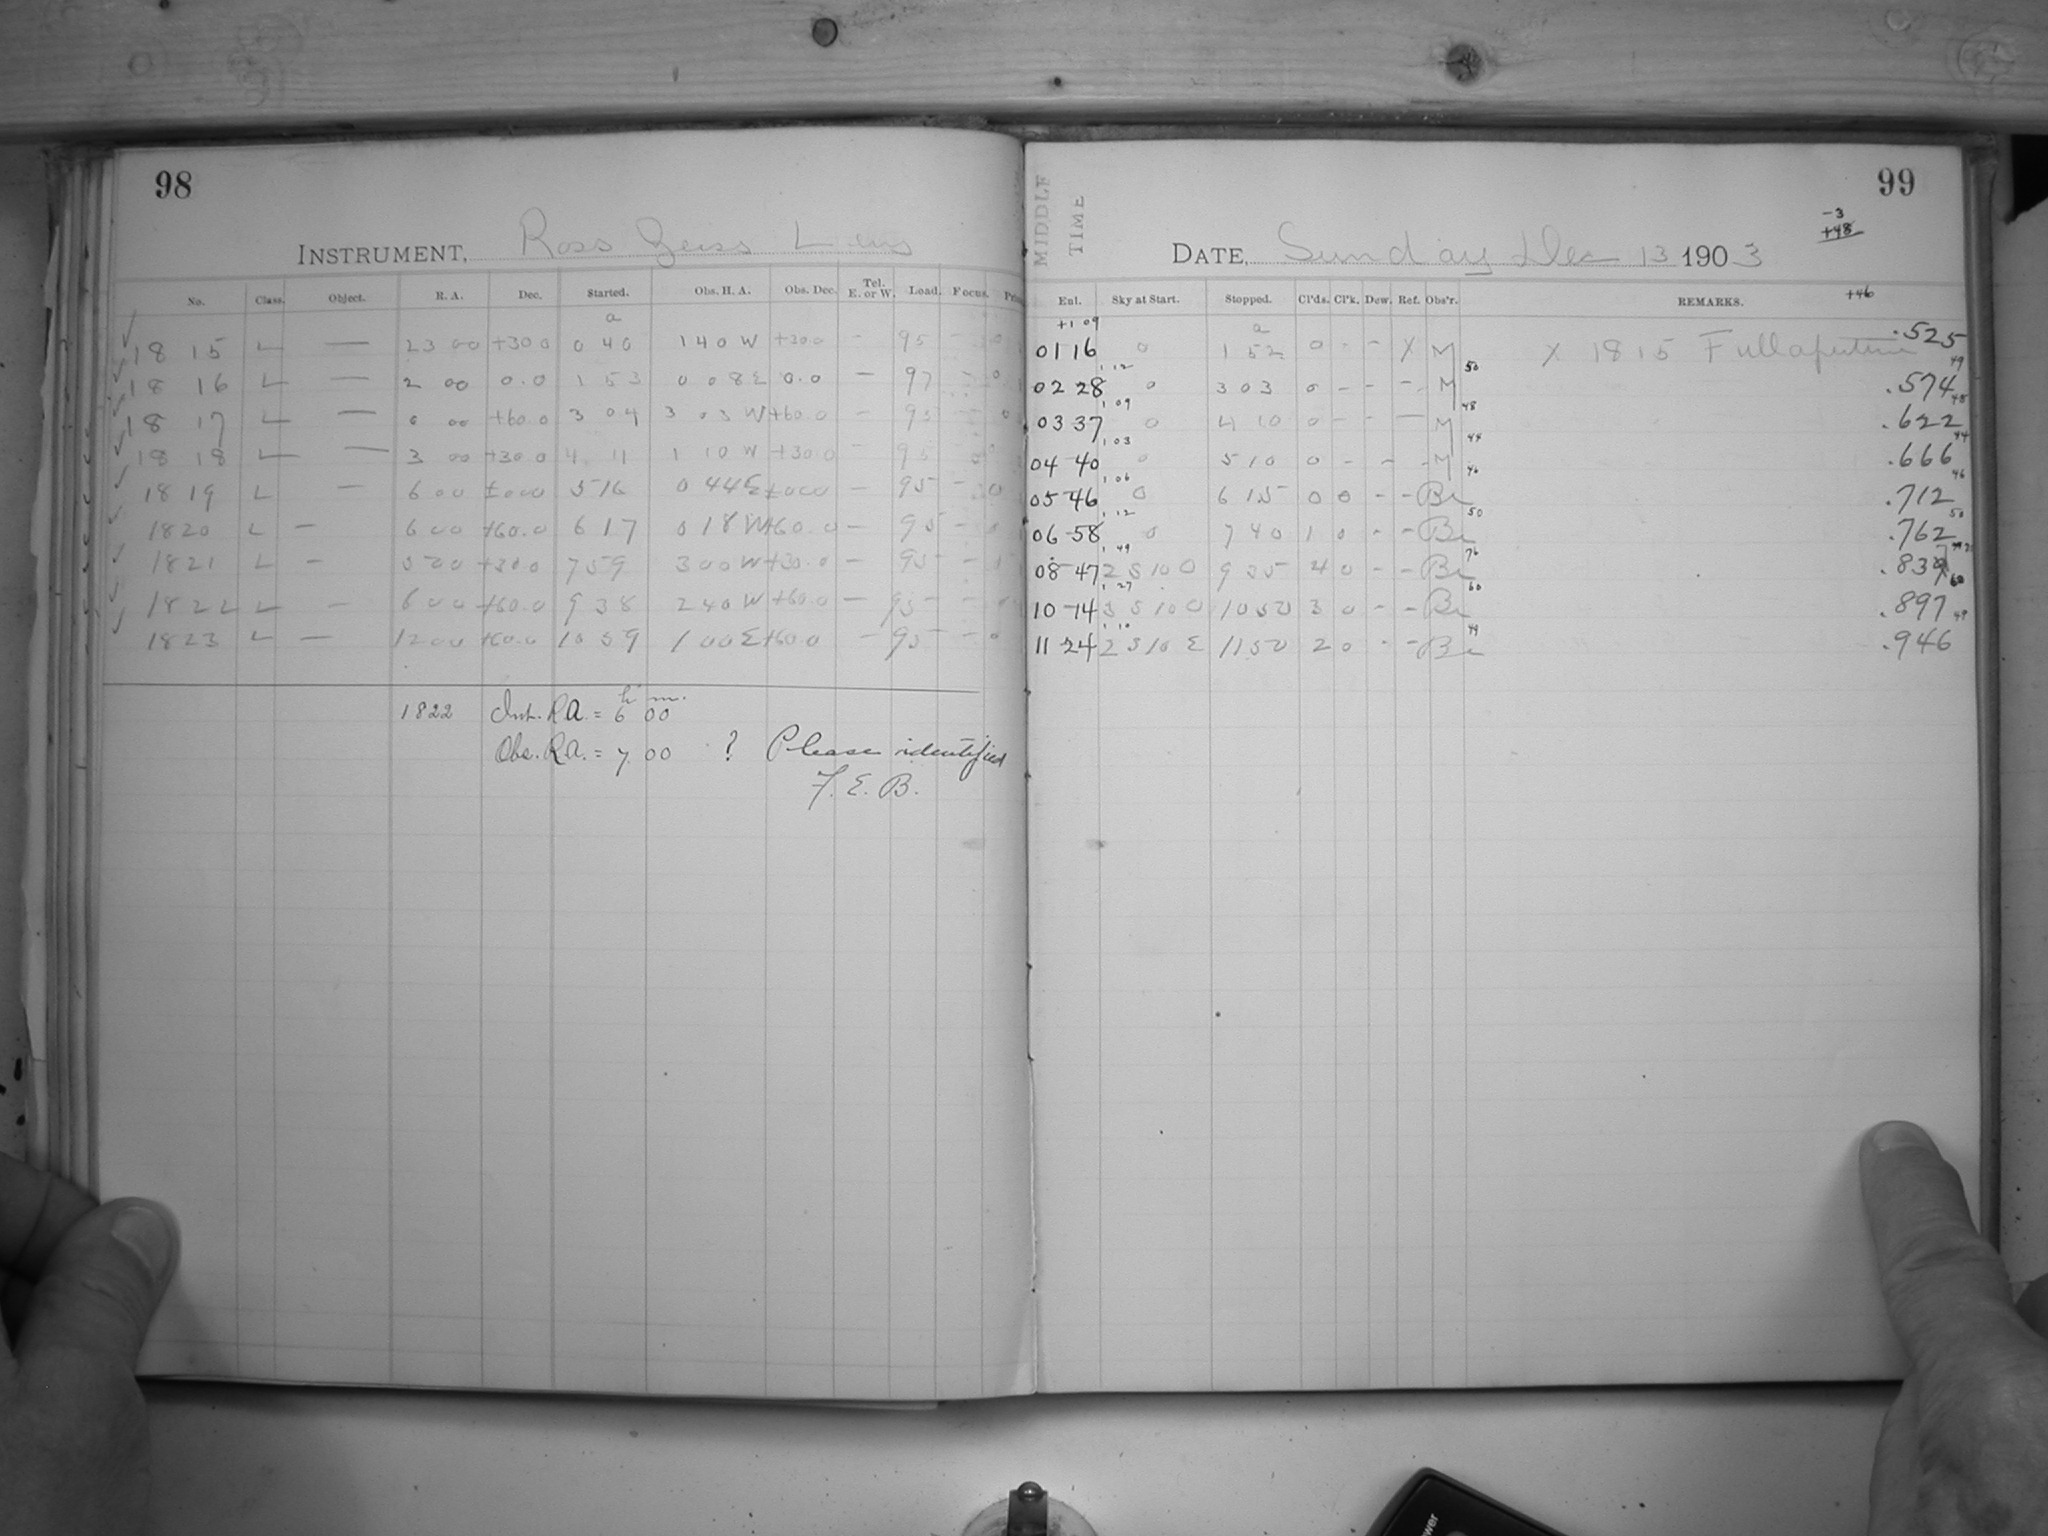 98
INSTRUMENT, Ross Zeiss Lens
No. Class. Object. R. A. Dec. Started. Obs. H. A. Obs. Dec. Tel. E. or W. Load. Focus.
a
1815 L — 23 00 +30 0 0 40 1 40 W +30.0 - 95 - 0
1816 L — 2 00 0.0 1 53 0 08 E 0.0 — 97 - 0
1817 L — 0 00 +60.0 3 04 3 03 W +60.0 - 95 - 0
1818 L — 3 00 +30.0 4 11 1 10 W +30.0 - 95
1819 L — 6 00 ±000 5 16 0 44 E ±000 — 95 - 0
1820 L — 6 00 +60.0 6 17 0 18 W +60.0 — 95 -
1821 L — +30.0 7 59 3 00 W +30.0 — 95 -
1822 L — 6 00 +60.0 9 38 2 40 W +60.0 — 95 -
1823 L — 12 00 +60.0 10 59 1 00 E +60.0 — 95 - 0
1822 Inst. R.A. = 6 h 00 m.
Obs. R.A. = 7 00 ? Please identified
F. E. B.
99
MIDDLE
TIME
-3
+48
DATE, Sunday Dec 13 1903
Ent. Sky at Start. Stopped. Cl'ds. Cl'k. Dew. Ref. Obs'r. REMARKS. +46
+1 09 a
01 16 0 1 52 0 - - X M X 1815 Full aperture .525
1 12 50 49
02 28 0 3 03 0 - - - M .574
1 09 48 48
03 37 0 4 10 0 - - — M .622
1 03 44 44
04 40 0 5 10 0 - - - M .666
1 06 46 46
05 46 0 6 15 0 0 - - Br .712
1 12 50 50
06 58 0 7 40 1 0 - - Br .762
1 49 76
08 47 2 S 10 0 9 35 4 0 - - Br
1 27 60 60
10 14 3 S 10 0 10 50 3 0 - - Br .897
1 10 49 49
11 24 2 S 10 E 11 50 2 0 - - Br .946